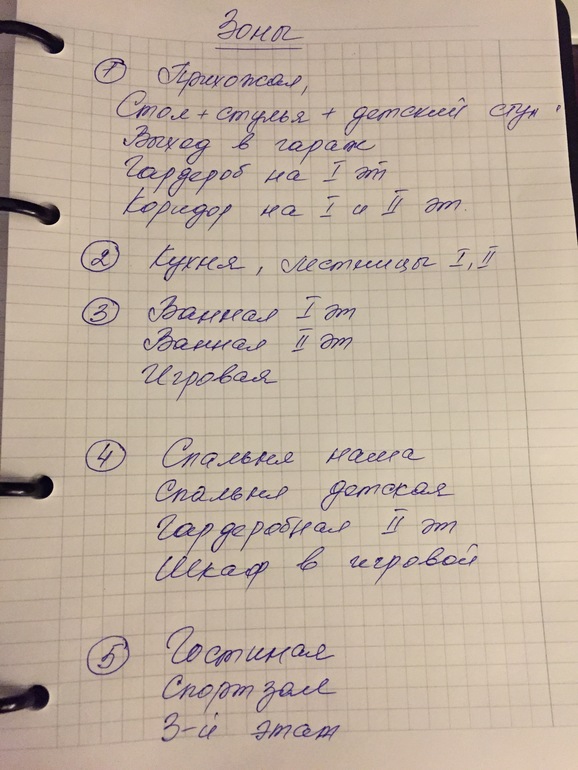 Зоны
① Прихожая,
Стол + стулья + детский стул
Выход в гараж
Гардероб на I эт
Коридор на I и II эт.
② Кухня, лестницы I, II
③ Ванная I эт
Ванная II эт
Игровая
④ Спальня наша
Спальня детская
Гардеробная II эт
Шкаф в игровой
⑤ Гостиная
Спортзал
3-й этаж